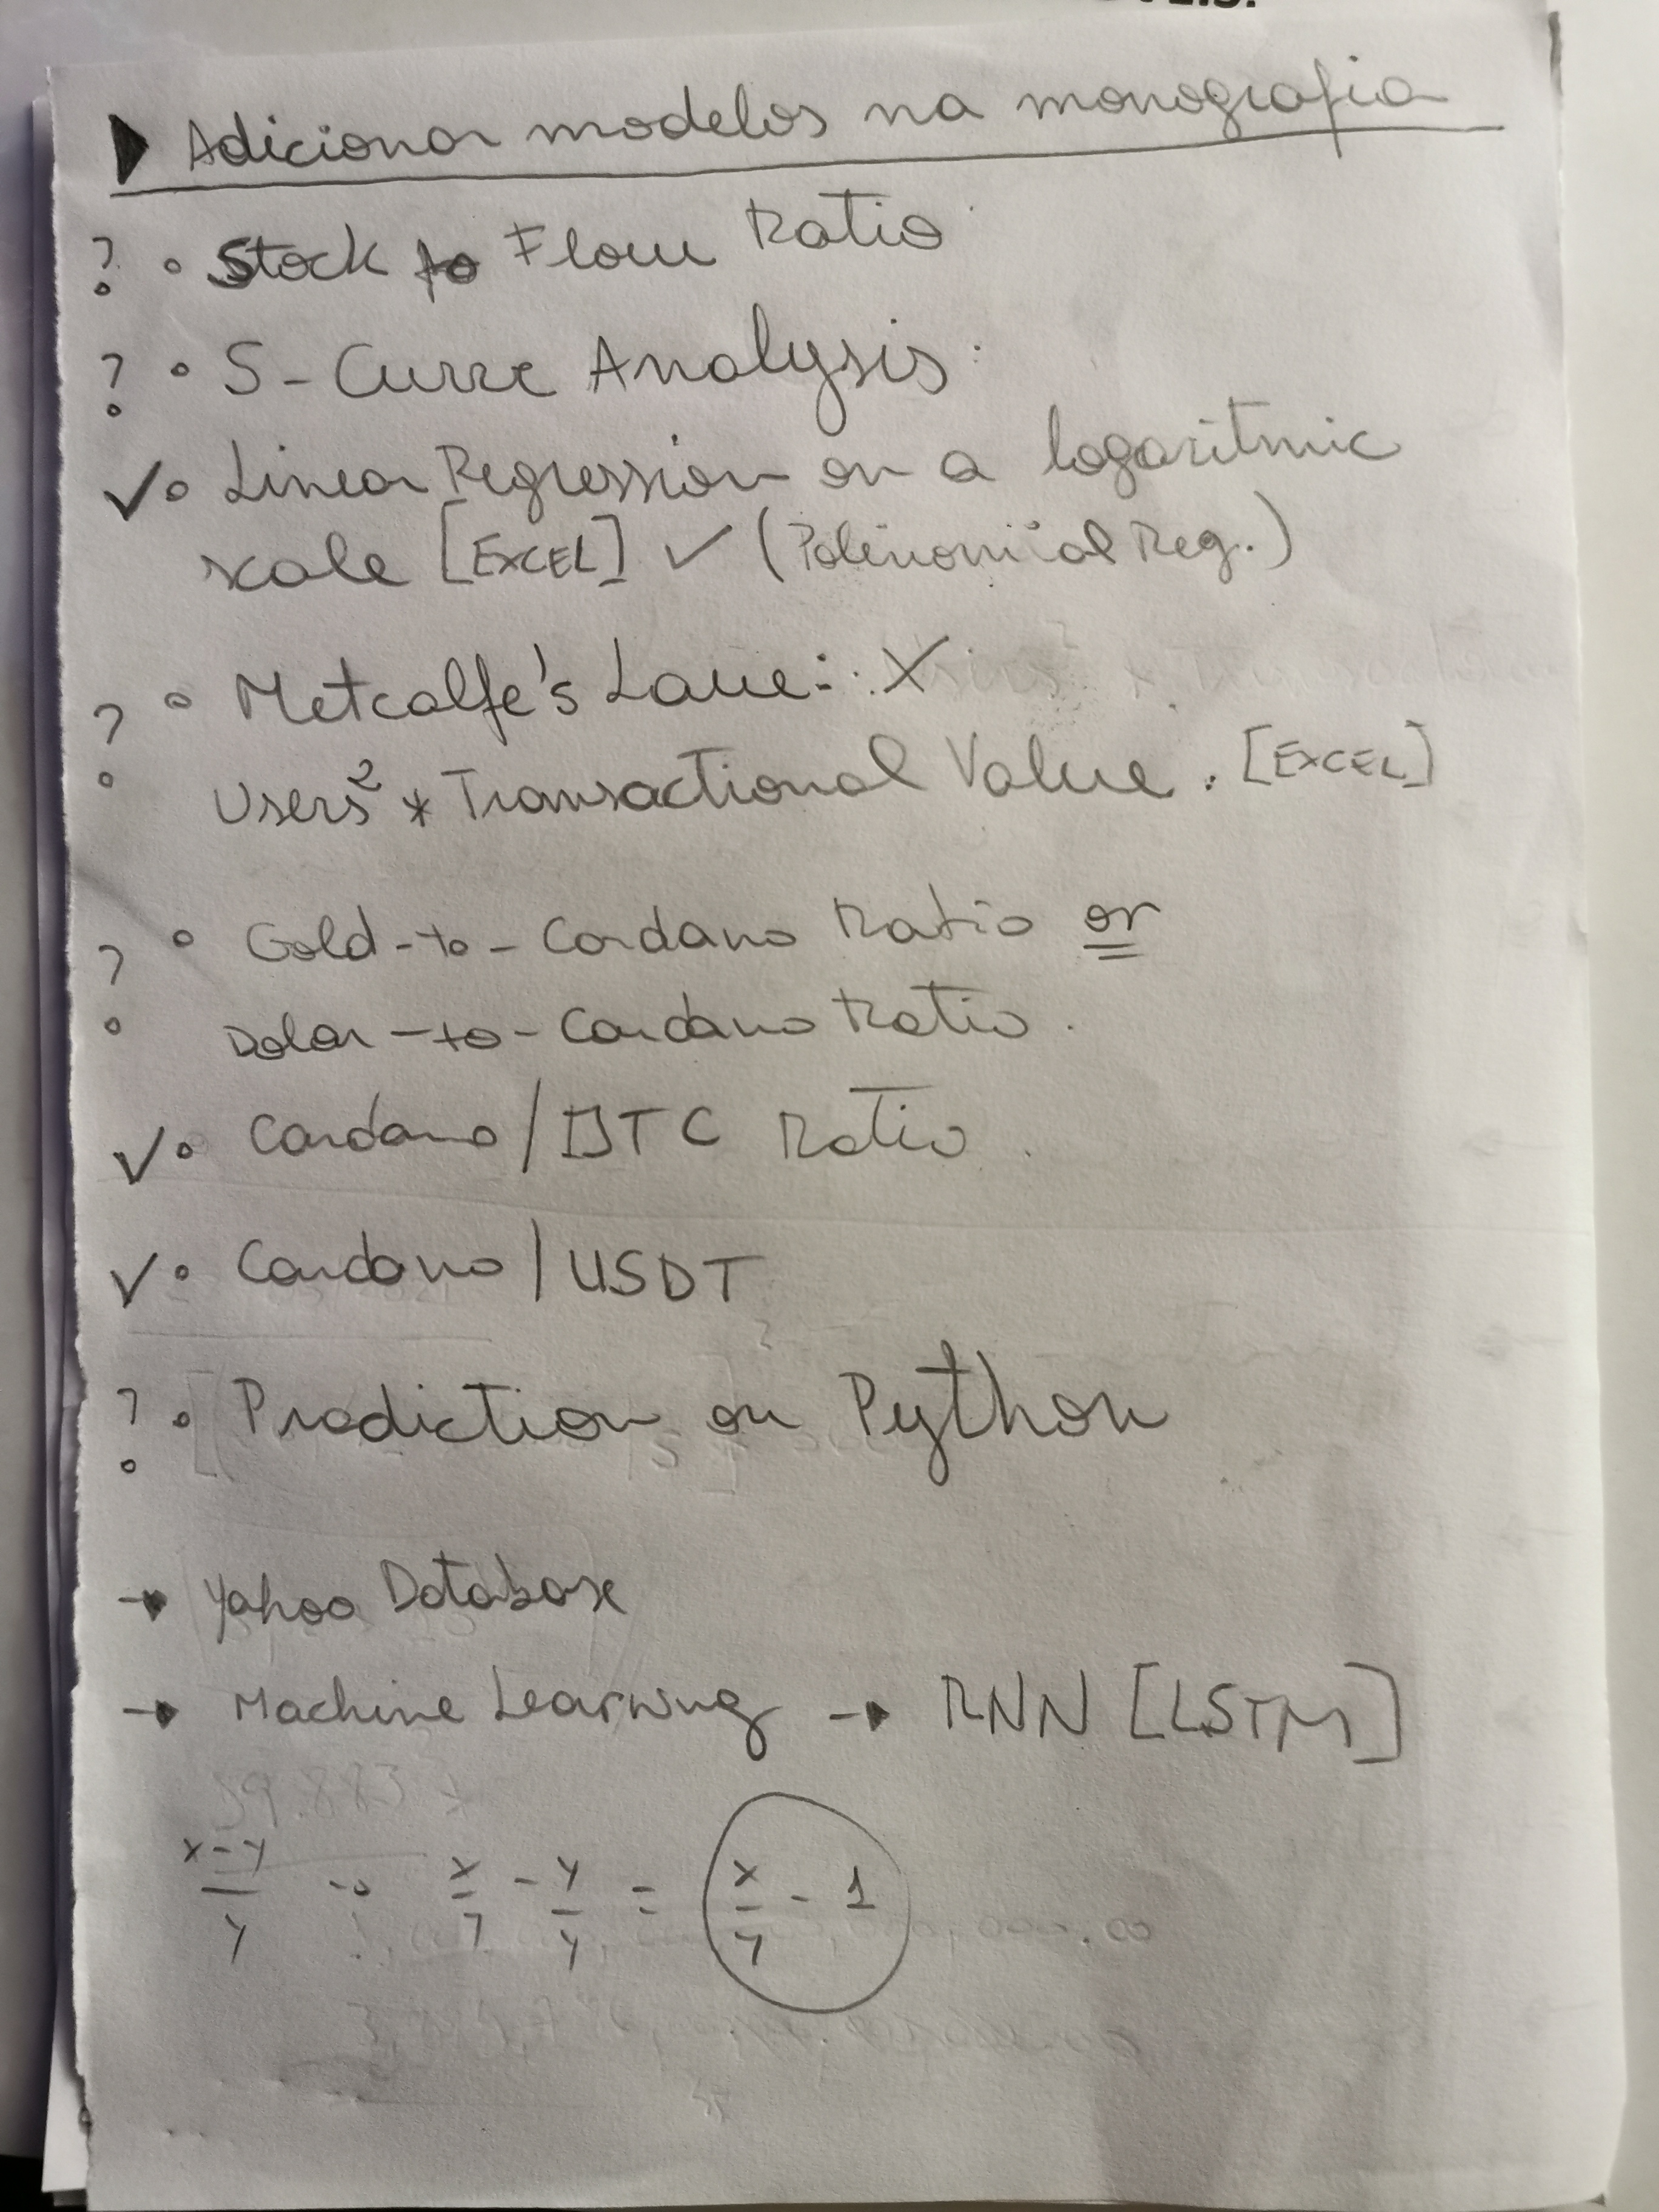 ▶ Adicionar modelos na monografia
? • Stock to Flow Ratio
? • S-Curve Analysis:
✓ • Linear Regression on a logaritmic
scale [EXCEL] ✓ (Polinomial Reg.)
? • Metcalfe's Lawe: X
Users² * Transactional Value. [EXCEL]
? • Gold-to-Cardano Ratio or
Dolar-to-Cardano Ratio.
✓ • Cardano/BTC Ratio.
✓ • Cardano/USDT
? • Prediction on Python
→ Yahoo Database
→ Machine Learning → RNN [LSTM]
39.883 *
(x-y)/y → x/y - y/y = x/y - 1